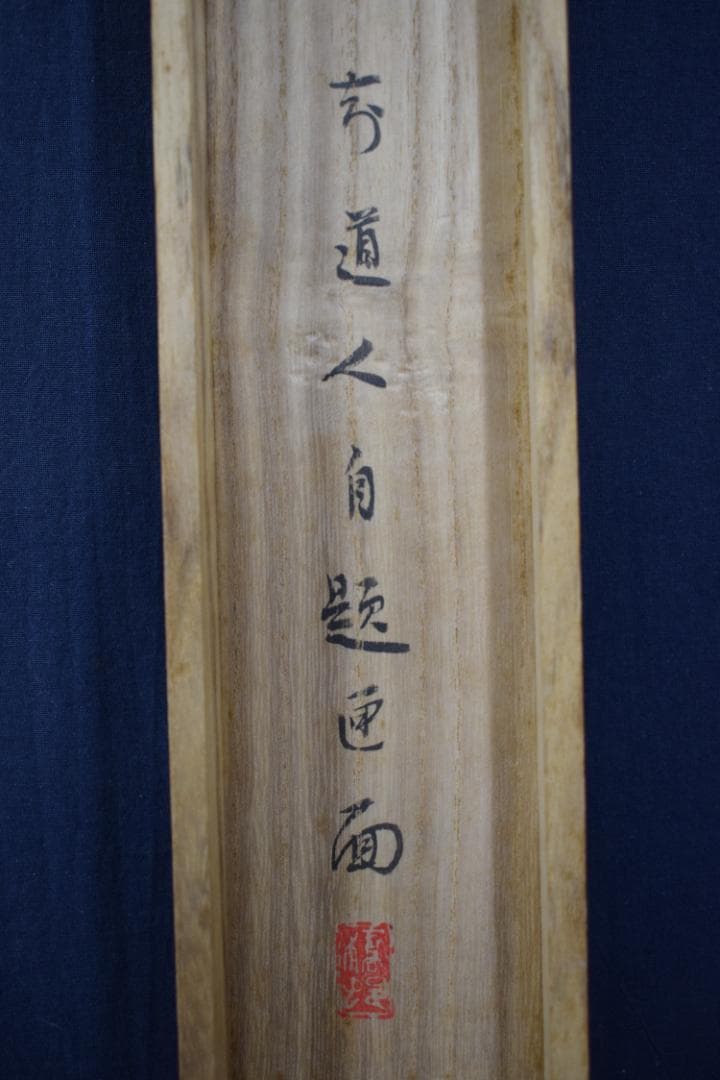 道人自題匣面